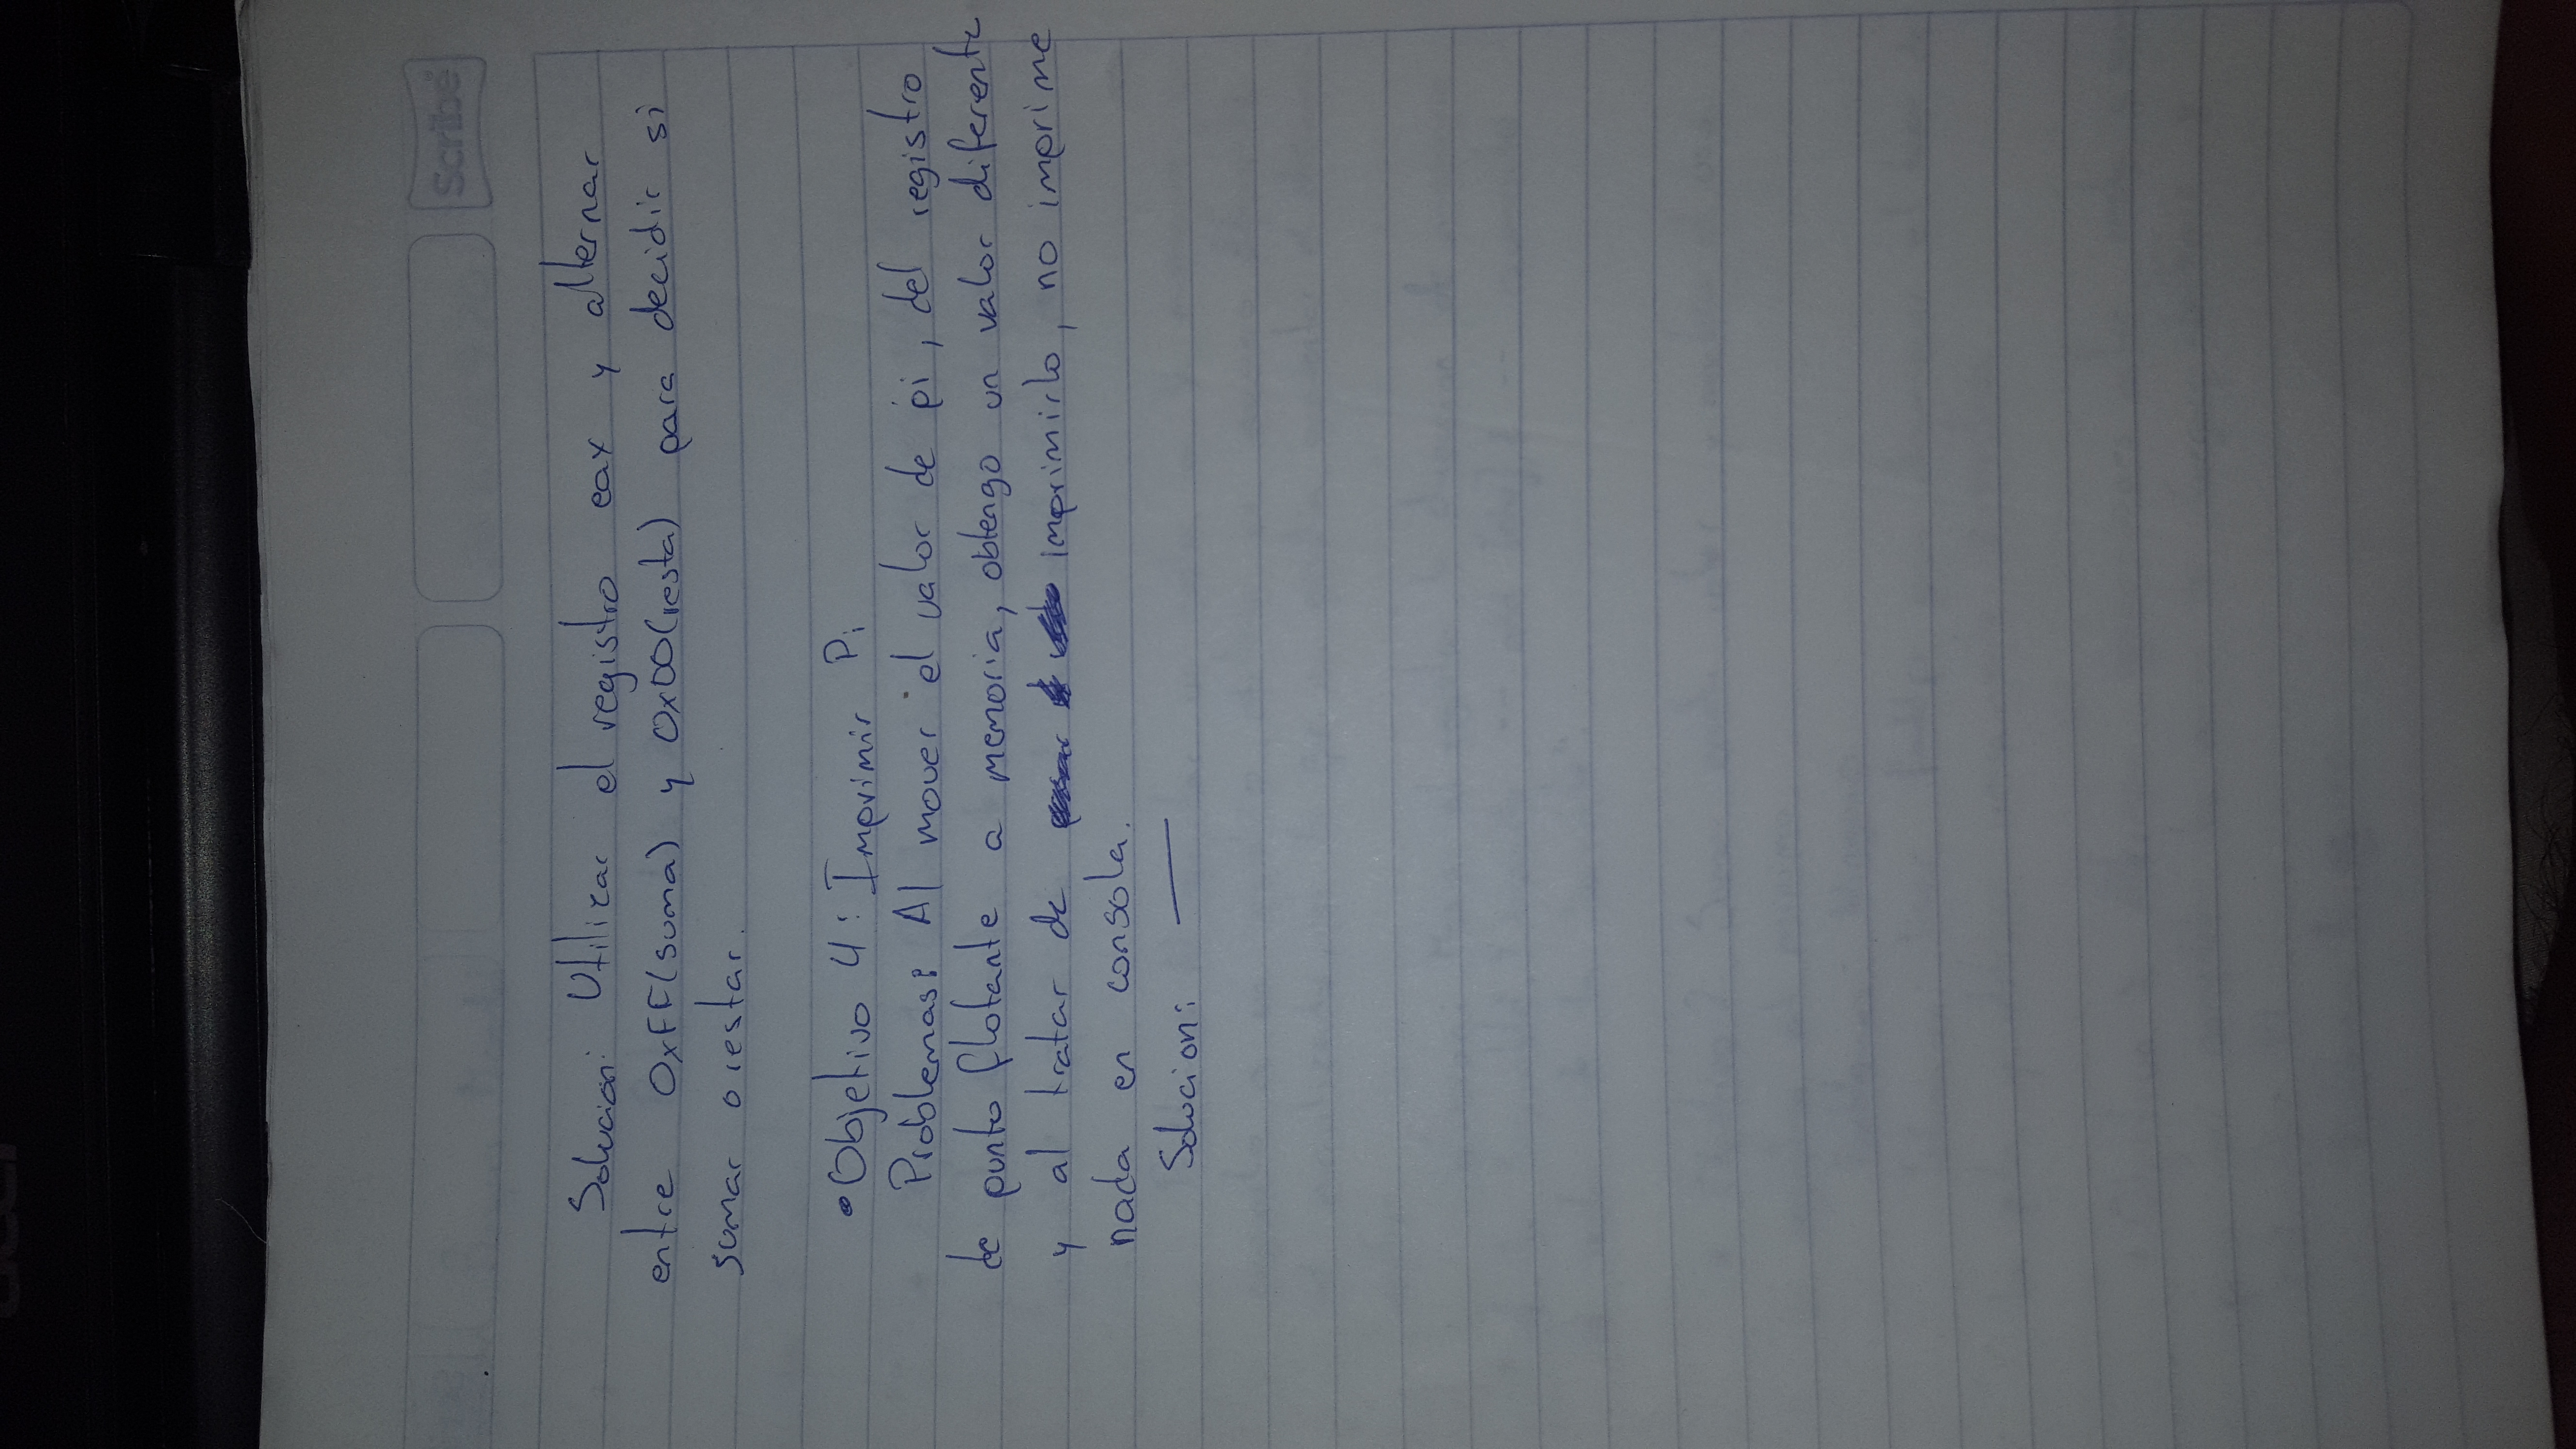 acer
Scribe
Solucion: Utilizar el registro eax y alternar
entre 0xFF(suma) y 0x00(resta) para decidir si
sumar o restar.
• Objetivo 4: Imprimir Pi
Problemas: Al mover el valor de pi, del registro
de punto flotante a memoria, obtengo un valor diferente
y al tratar de imprimirlo, no imprime
nada en consola.
Solucion: —